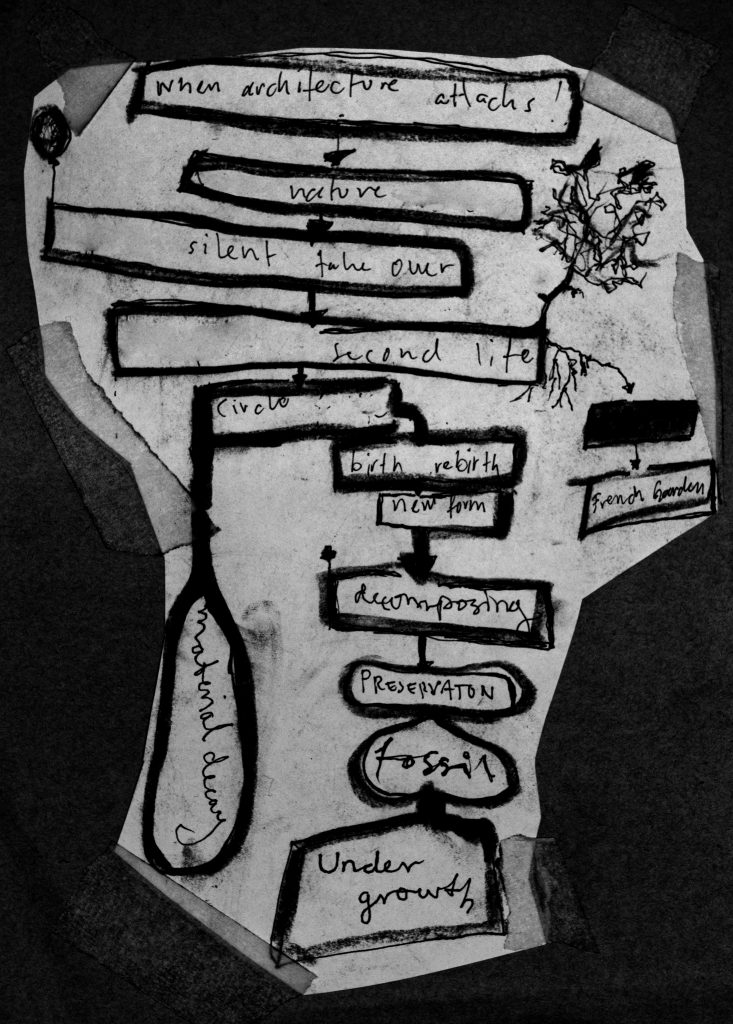 when architecture attacks!
nature
silent take over
second life
Circle
birth rebirth
new form
French Gaarden
decomposing
PRESERVATON
fossil
material decay
Under
growth